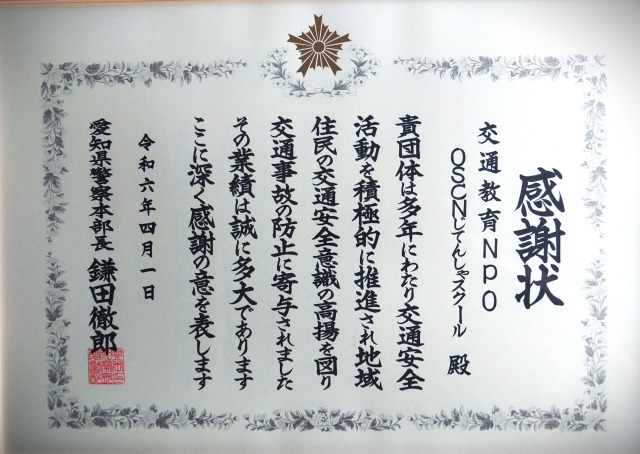 感謝状
交通教育NPO
OSCNじてんしゃスクール 殿
貴団体は多年にわたり交通安全
活動を積極的に推進され地域
住民の交通安全意識の高揚を図り
交通事故の防止に寄与されました
その業績は誠に多大であります
ここに深く感謝の意を表します
令和六年四月一日
愛知県警察本部長 鎌田徹郎